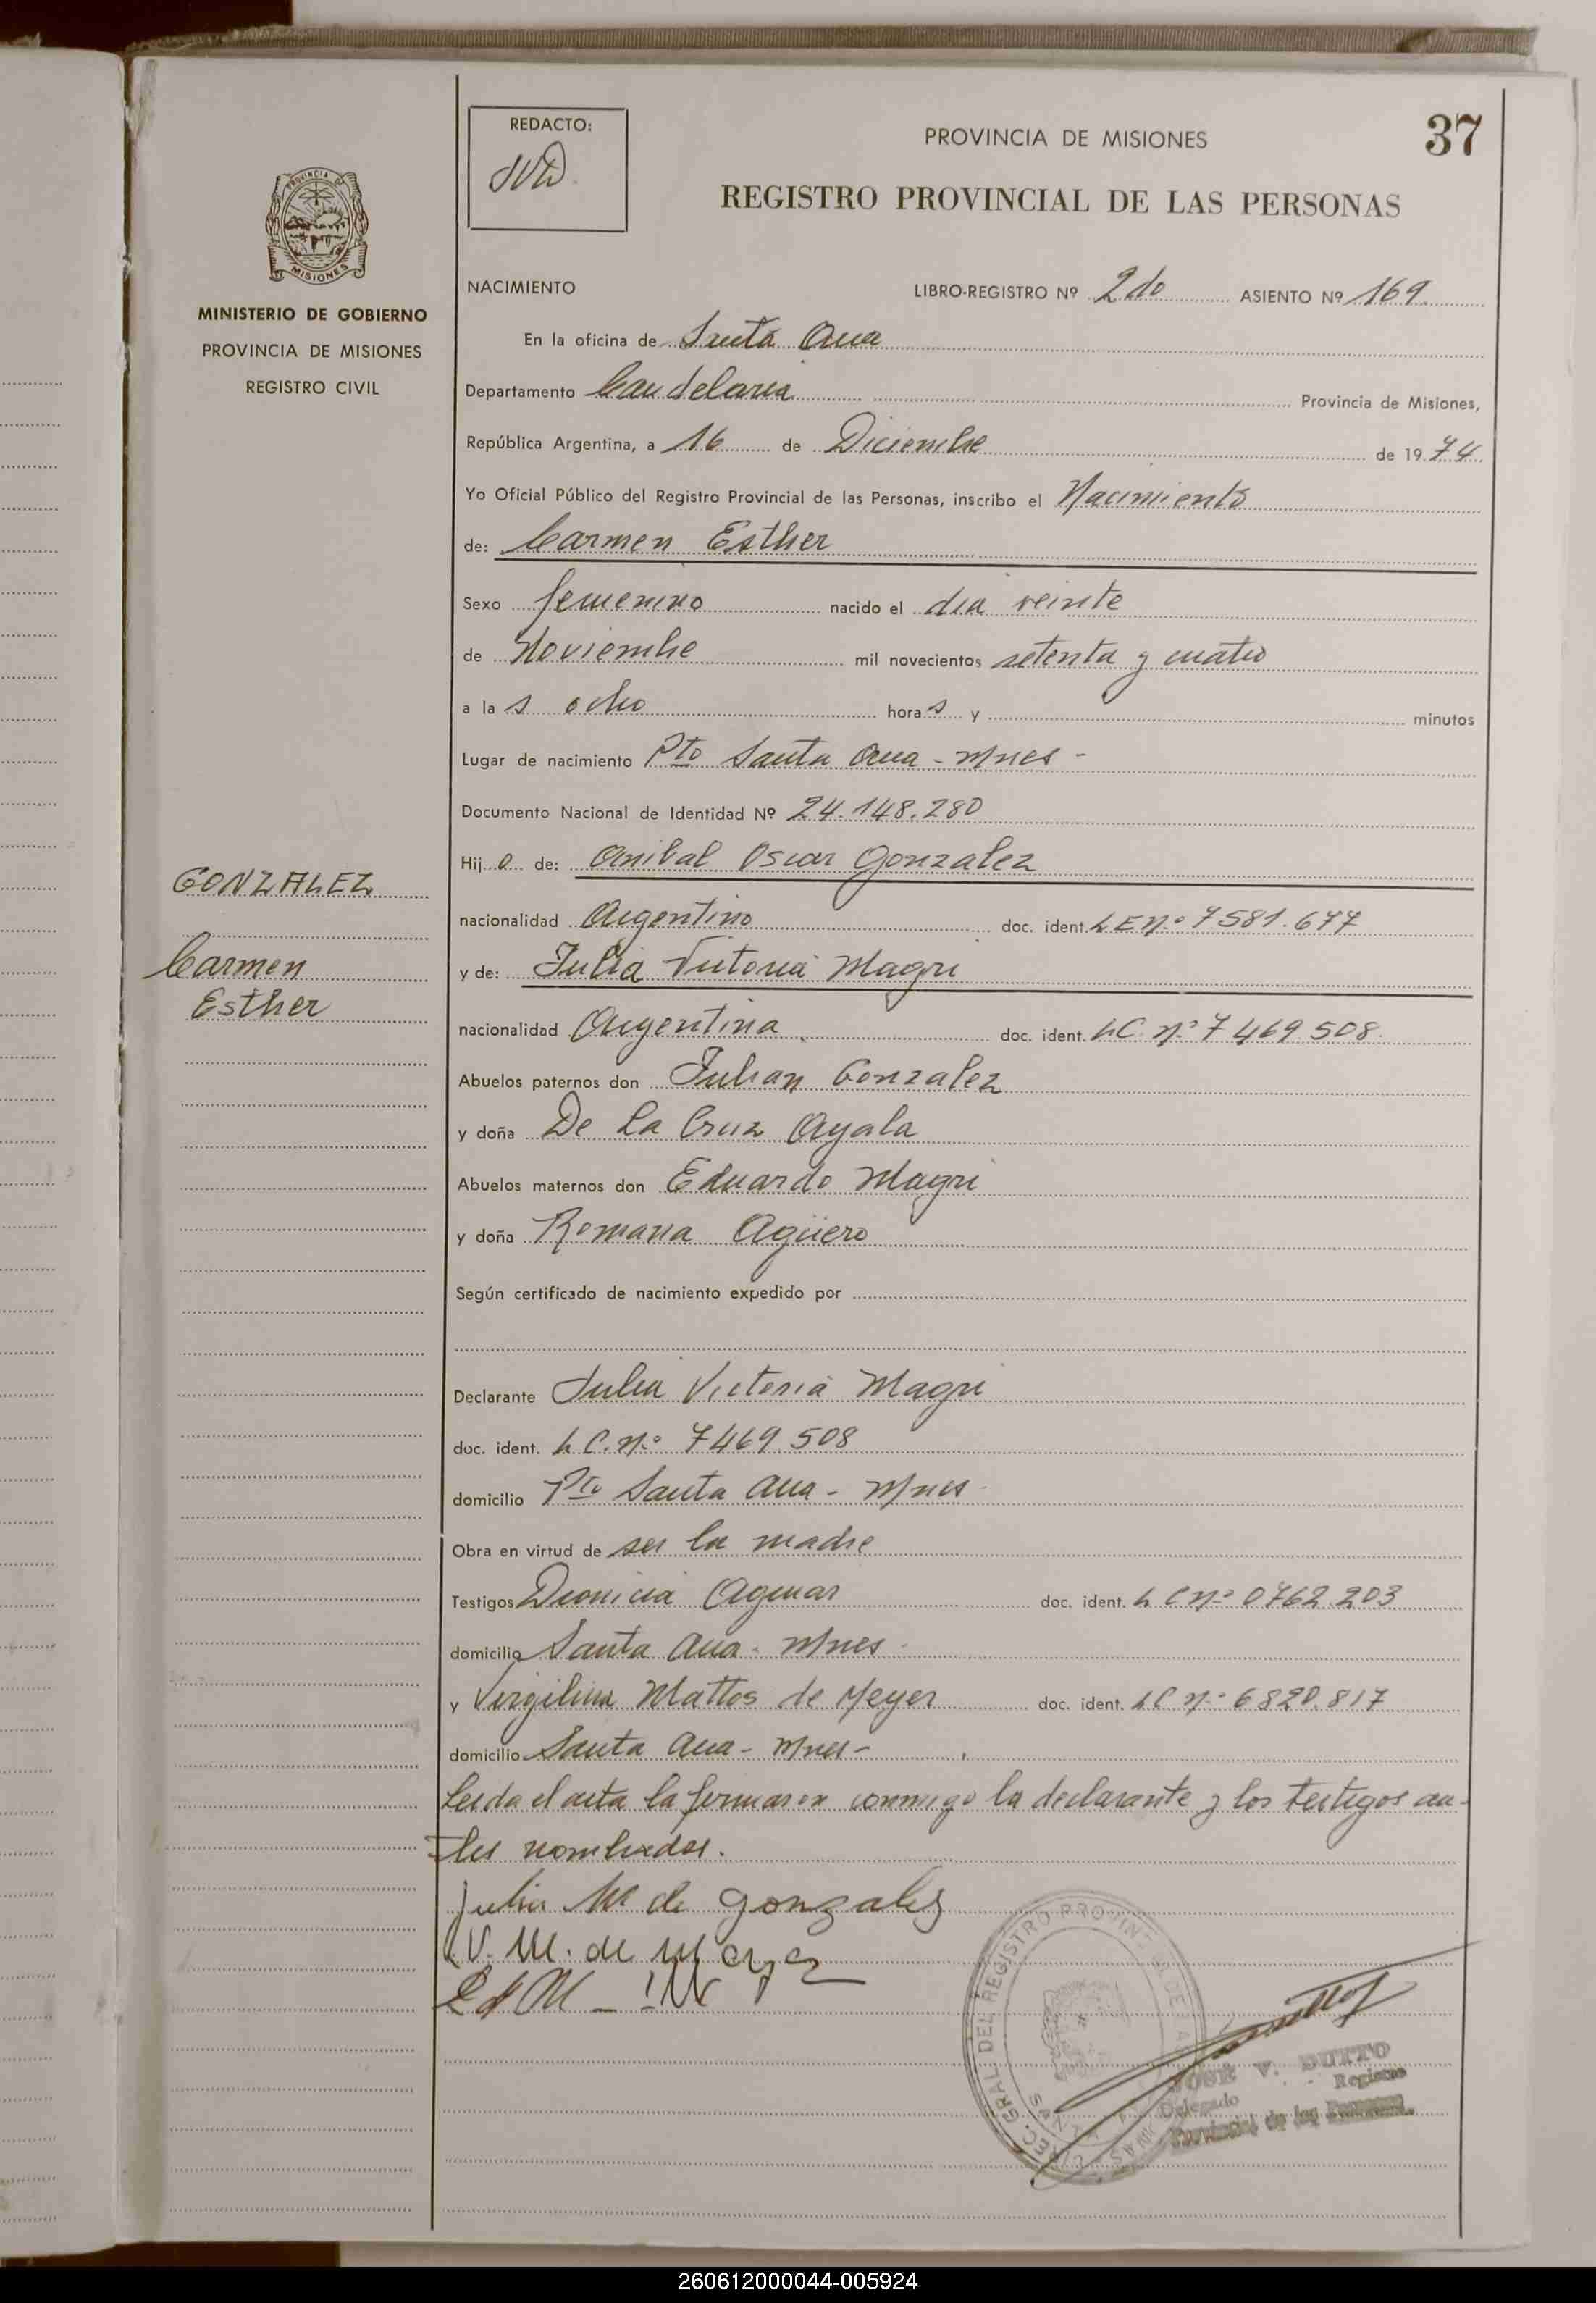 REDACTO:
PROVINCIA DE MISIONES
37
REGISTRO PROVINCIAL DE LAS PERSONAS
PROVINCIA DE
MISIONES
MINISTERIO DE GOBIERNO
PROVINCIA DE MISIONES
REGISTRO CIVIL
NACIMIENTO
LIBRO-REGISTRO Nº 2do ASIENTO Nº 169
En la oficina de Santa Ana
Departamento Candelaria Provincia de Misiones,
República Argentina, a 16 de Diciembre de 1974
Yo Oficial Público del Registro Provincial de las Personas, inscribo el Nacimiento
de: Carmen Esther
Sexo femenino nacido el dia veinte
de Noviembre mil novecientos setenta y cuatro
a la s ocho hora s y minutos
Lugar de nacimiento Pto Santa Ana - Mnes -
Documento Nacional de Identidad Nº 24.148.280
Hij o de: Anibal Oscar Gonzalez
GONZALEZ
nacionalidad Argentino doc. ident. L E nº 7.581.677
Carmen
y de: Julia Victoria Magri
Esther
nacionalidad Argentina doc. ident. L C. nº 7 469 508
Abuelos paternos don Julian Gonzalez
y doña De La Cruz Ayala
Abuelos maternos don Eduardo Magri
y doña Romana Agüero
Según certificado de nacimiento expedido por
Declarante Julia Victoria Magri
doc. ident. L C. nº 7469.508
domicilio Pto Santa Ana - Mnes
Obra en virtud de ser la madre
Testigos Dionicia Aguiar doc. ident. L C nº 0762.203
domicilio Santa Ana - Mnes -
y Virgilina Mattos de Meyer doc. ident. L C nº 6820.817
domicilio Santa Ana - Mnes -
Leida el acta la firmaron conmigo la declarante y los testigos an-
tes nombrados.
Julia M de gonzalez
V. M. de
DEL REGISTRO
JOSE V. DUTTO
Delegado Registro
Provincial de las Personas
260612000044-005924